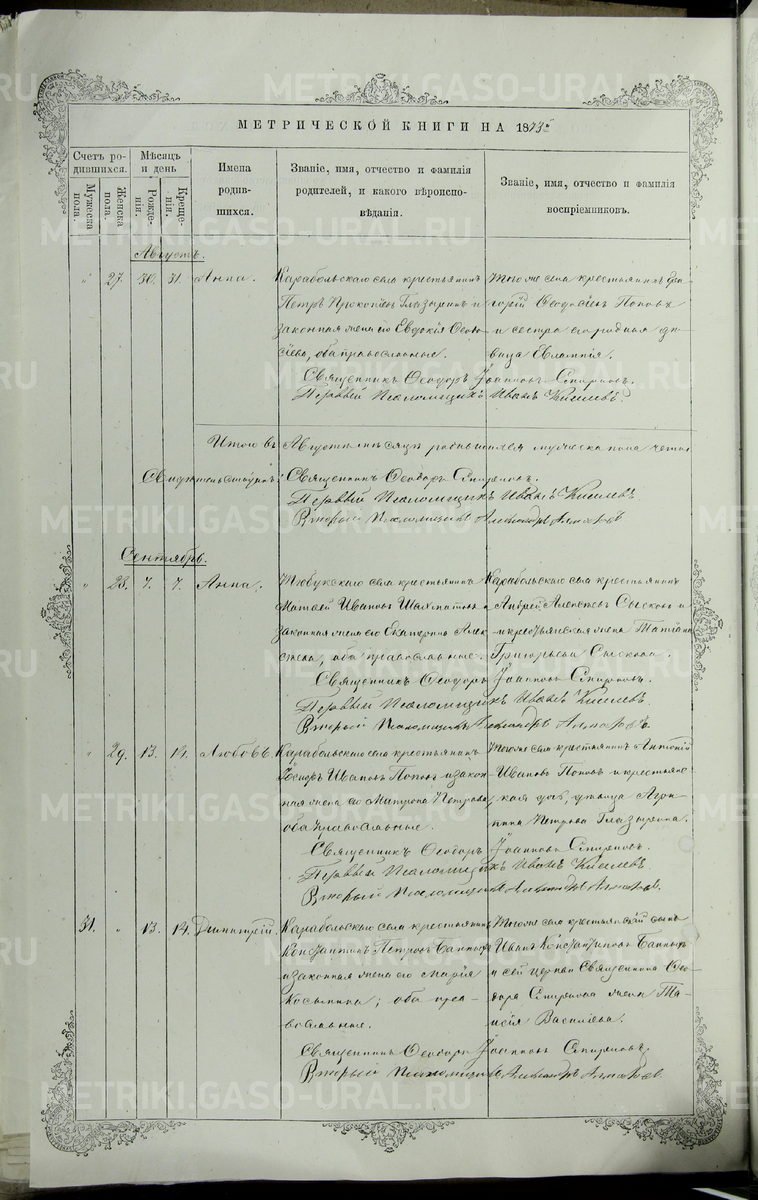 МЕТРИЧЕСКОЙ КНИГИ НА 1873й
Счетъ родившихся.
Мужеска пола.
Женска пола.
Мѣсяцъ и день
Рожденія.
Крещенія.
Имена родившихся.
Званіе, имя, отчество и фамилія родителей, и какого вѣроисповѣданія.
Званіе, имя, отчество и фамилія воспріемниковъ.
Августъ.
" 27. 30. 31. Анна.
Карабольскаго села крестьянинъ
Петръ Прокопіевъ Глазыринъ и
законная жена его Евдокія Ѳеодо-
сіева, оба православные.
Того же села крестьянинъ Гри-
горій Ѳеодосіевъ Поповъ
и сестра его родная дѣ-
вица Евлампія.
Священникъ Ѳеодоръ Іоанновъ Смирновъ.
Первый Псаломщикъ Иванъ Киселевъ.
Итого въ Августѣ мѣсяцѣ родившихся мужеска пола
Свидѣтельствуютъ: Священникъ Ѳеодоръ Смирновъ.
Первый Псаломщикъ Иванъ Киселевъ
Второй Псаломщикъ Александръ
Сентябрь.
" 28. 7. 7. Анна.
Тюбукскаго села крестьянинъ
Матвей Ивановъ Шахматовъ и
законная жена его Екатерина Алек-
сѣева, оба православные.
Карабольскаго села крестьянинъ
Андрей Алексѣевъ Сысковъ и
крестьянская жена Татіана
Григорьева Сыскова.
Священникъ Ѳеодоръ Іоанновъ Смирновъ.
Первый Псаломщикъ Иванъ Киселевъ.
Второй Псаломщикъ Александръ
" 29. 13. 14. Любовь
Карабольскаго села крестьянинъ
Іосифъ Ивановъ Поповъ и закон-
ная жена его Матрона Петрова,
оба православные.
Того же села крестьянинъ Антоній
Ивановъ Поповъ и крестьянс-
кая дочь, дѣвица Агри-
пина Петрова Глазырина.
Священникъ Ѳеодоръ Іоанновъ Смирновъ.
Первый Псаломщикъ Иванъ Киселевъ.
Второй Псаломщикъ Александръ
31. " 13. 14. Димитрій.
Карабольскаго села крестьянинъ
Константинъ Петровъ Банныхъ
и законная жена его Марія
Косьмина; оба пра-
вославные.
Того же села крестьянскій сынъ
Иванъ Константиновъ Банныхъ
и сей церкви Священника Ѳео-
дора Смирнова жена Та-
исія Васильева.
Священникъ Ѳеодоръ Іоанновъ Смирновъ.
Второй Псаломщикъ Александръ
METRIKI.GASO-URAL.RU